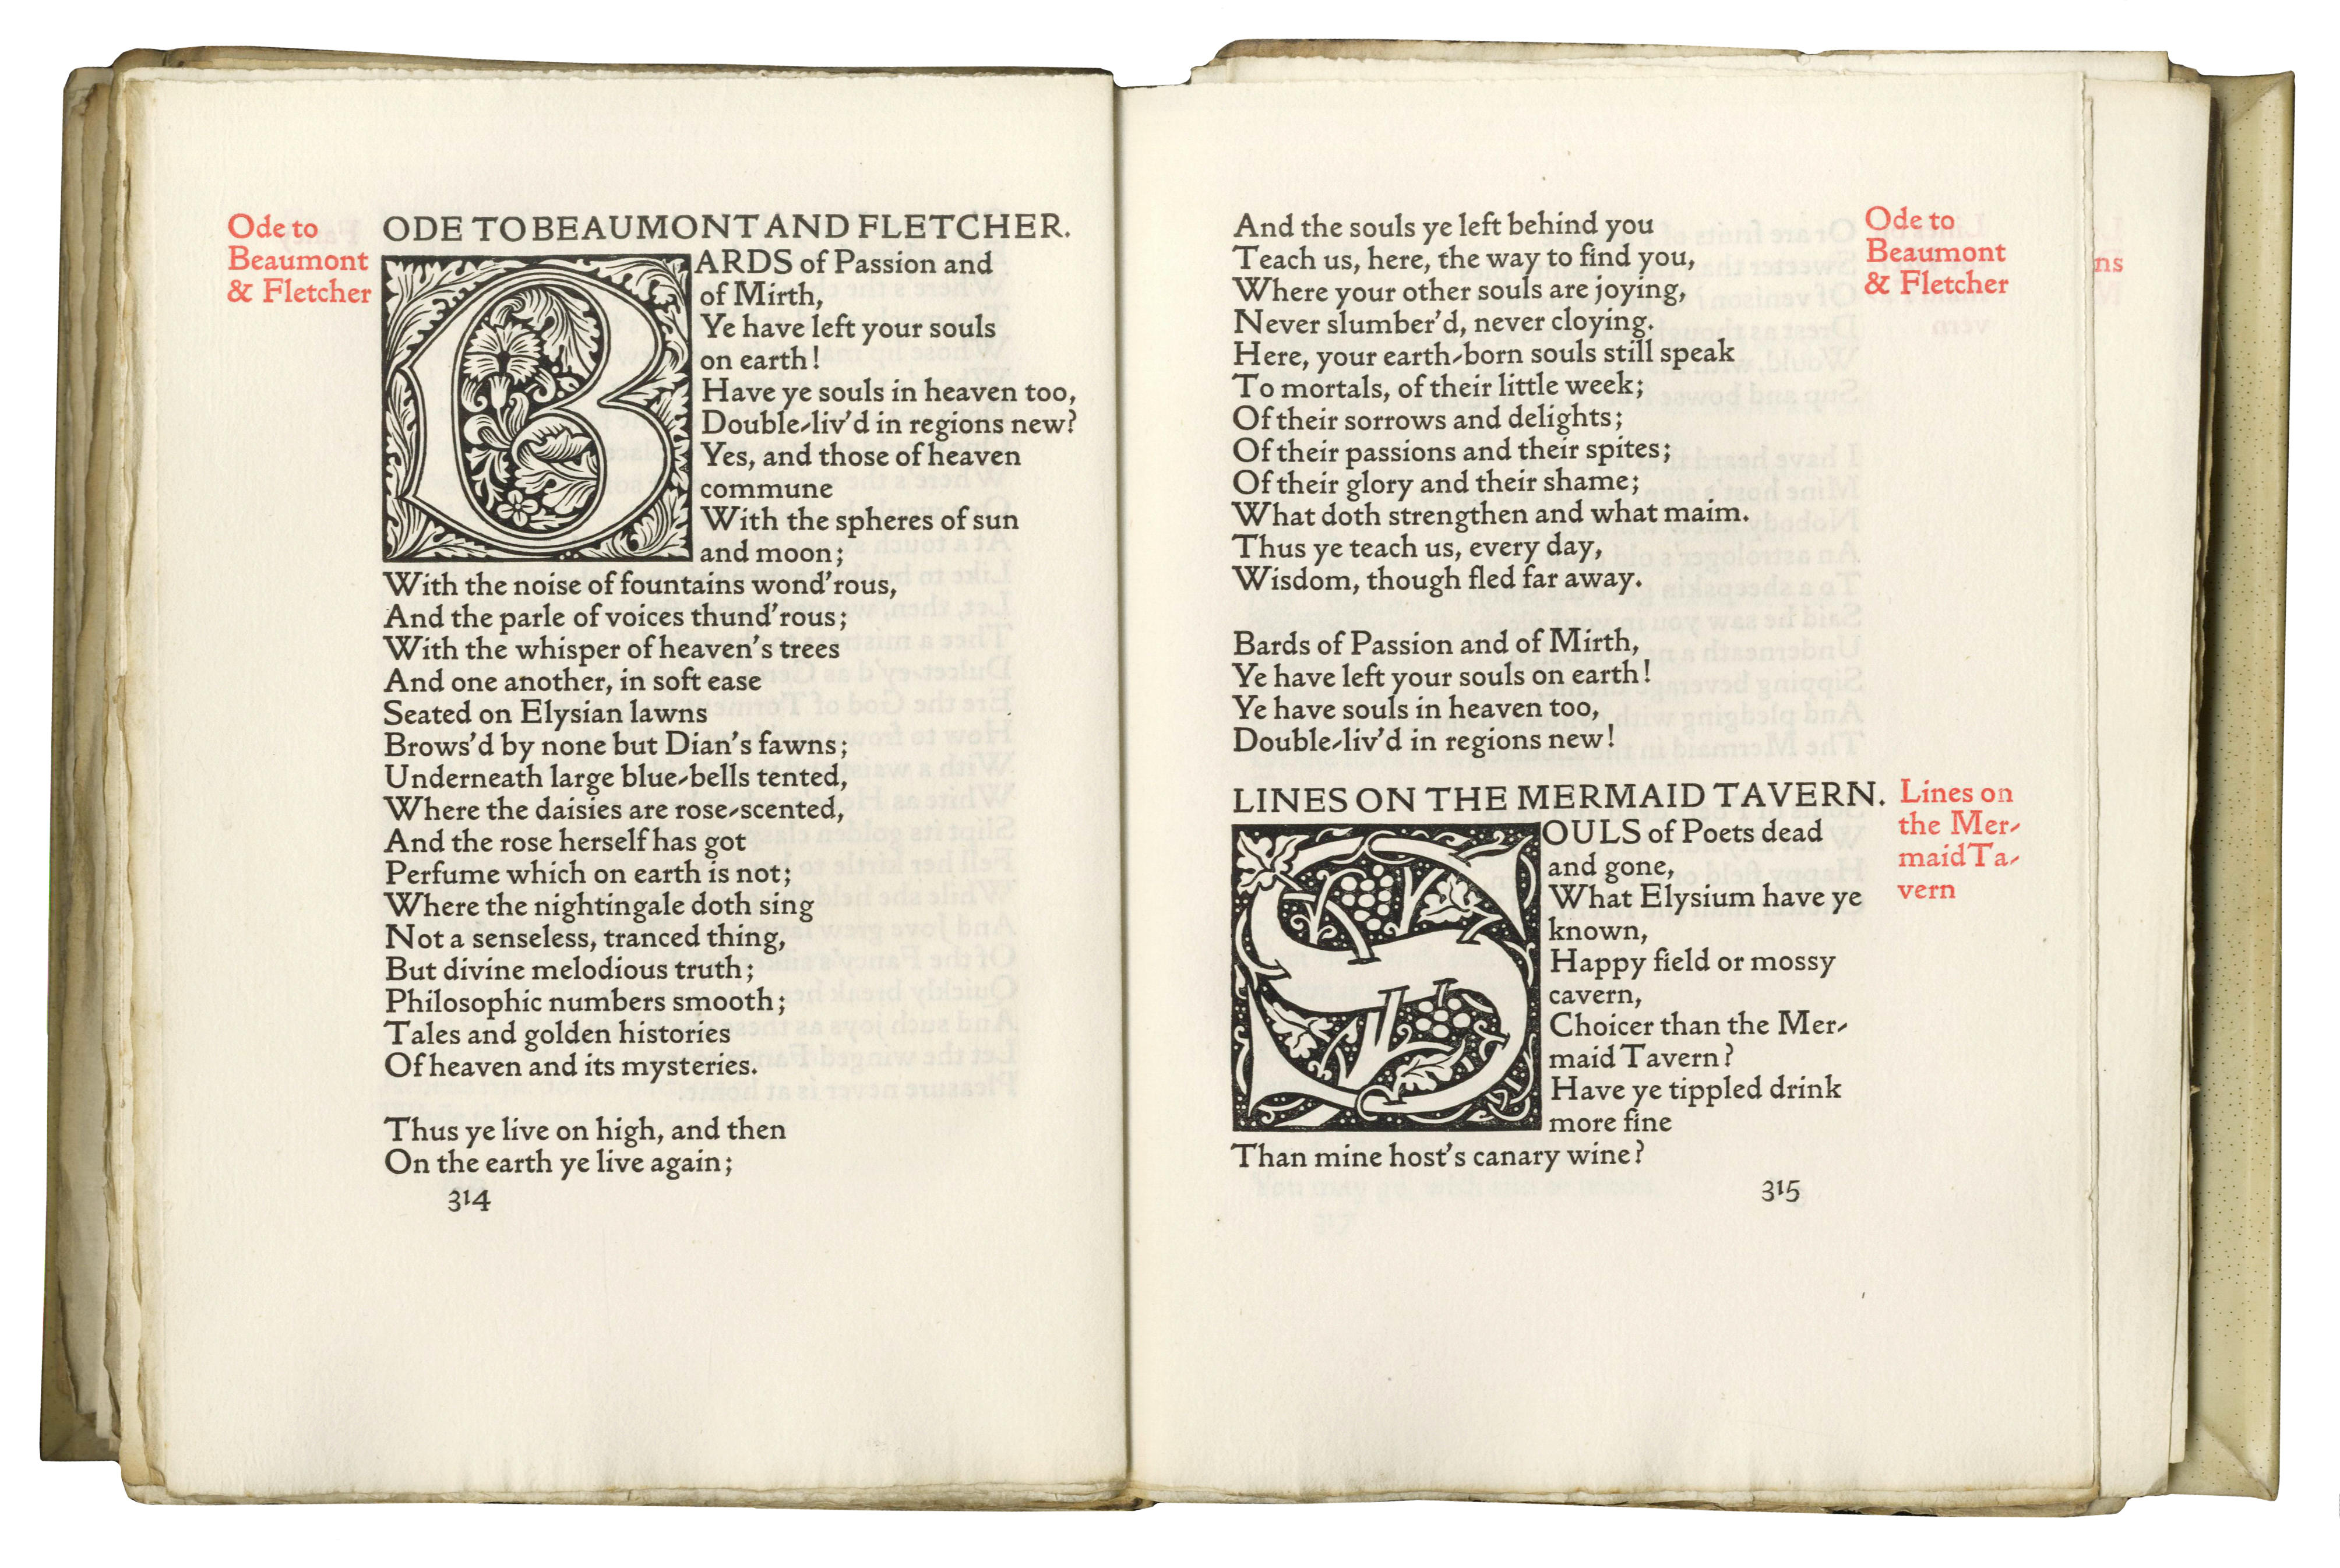 Ode to
Beaumont
& Fletcher
ODE TO BEAUMONT AND FLETCHER.
BARDS of Passion and
of Mirth,
Ye have left your souls
on earth!
Have ye souls in heaven too,
Double-liv'd in regions new?
Yes, and those of heaven
commune
With the spheres of sun
and moon;
With the noise of fountains wond'rous,
And the parle of voices thund'rous;
With the whisper of heaven's trees
And one another, in soft ease
Seated on Elysian lawns
Brows'd by none but Dian's fawns;
Underneath large blue-bells tented,
Where the daisies are rose-scented,
And the rose herself has got
Perfume which on earth is not;
Where the nightingale doth sing
Not a senseless, tranced thing,
But divine melodious truth;
Philosophic numbers smooth;
Tales and golden histories
Of heaven and its mysteries.
Thus ye live on high, and then
On the earth ye live again;
314
And the souls ye left behind you
Teach us, here, the way to find you,
Where your other souls are joying,
Never slumber'd, never cloying.
Here, your earth-born souls still speak
To mortals, of their little week;
Of their sorrows and delights;
Of their passions and their spites;
Of their glory and their shame;
What doth strengthen and what maim.
Thus ye teach us, every day,
Wisdom, though fled far away.
Bards of Passion and of Mirth,
Ye have left your souls on earth!
Ye have souls in heaven too,
Double-liv'd in regions new!
Ode to
Beaumont
& Fletcher
LINES ON THE MERMAID TAVERN.
SOULS of Poets dead
and gone,
What Elysium have ye
known,
Happy field or mossy
cavern,
Choicer than the Mer-
maid Tavern?
Have ye tippled drink
more fine
Than mine host's canary wine?
Lines on
the Mer-
maid Ta-
vern
315
ns